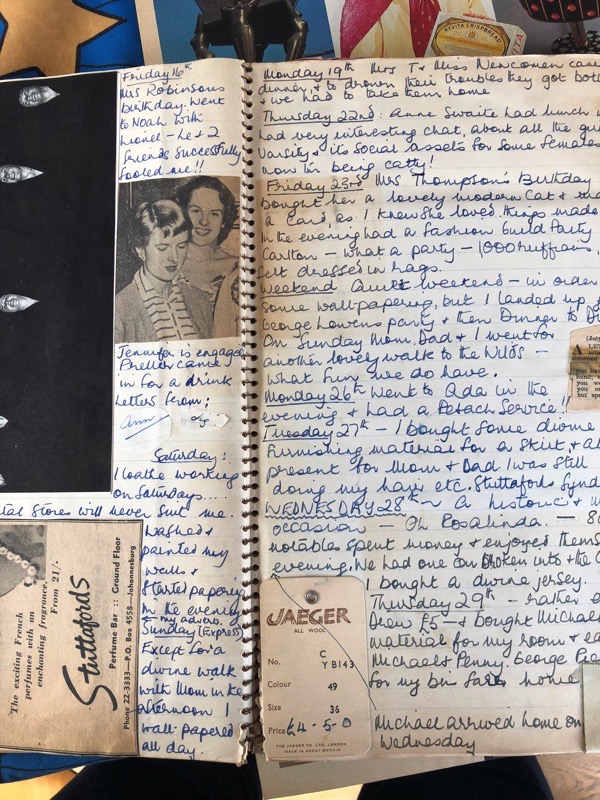 REVITA CRISPBREAD
Friday 16th
Mrs Robinsons
Birthday. Went
to Noah with
Lionel - he & 2
friends successfully
fooled me!!
Jennifer is engaged
came
in for a drink
Letters from;
Saturday!
I loathe working
on Saturdays....
Stores will never suit me.
Washed &
painted my
walls &
Started papering
In the evening
← my advert.
Sunday (Express)
Except for a
divine walk
with Mom in the
afternoon I
wall-papered
all day.
The exciting French
perfumes with an
enchanting fragrance.
From 21/-
Stuttafords
Perfume Bar :: Ground Floor
Phone 22-3333—P.O. Box 4558—Johannesburg
Monday 19th Mrs T & Miss Newcomen
dinner, & to drown their troubles they got both
& we had to take them home
Thursday 22nd: Anne Swaite had lunch
had very interesting chat, about all the
Varsity & its social assets for some females
now I'm being catty!
Friday 23rd Mrs Thompson's Birthday
bought her a lovely modern Cat &
a Card, as I knew she loved things made
In the evening had a Fashion Guild Party
Carlton - what a party - 1000 ruffians,
felt dressed in rags.
Weekend Quiet weekend - in order
some wall-papering, but I landed up
George Lowens party & then Dinner to
On Sunday Mom, Dad & I went for
another lovely walk to the Wilds -
what fun we do have.
Monday 26th went to Ada in the
evening & had a Pesach Service!!
Tuesday 27th - I bought some divine
furnishing material for a skirt, &
present for Mom & Dad I was still
doing my hair etc. Stuttafords
WEDNESDAY 28th - A historic &
occasion - Oh Rosalinda. -
notables spent money & enjoyed
evening. We had one broken into &
I bought a divine jersey.
Thursday 29th - rather
Drew £5 - & bought
material for my room &
Michael & Penny. George
for my home
Michael arrived home on
Wednesday
JAEGER
ALL WOOL
No. C
YB143
Colour 49
Size 36
Price £4-5-0
THE JAEGER CO. LTD. LONDON
MADE IN GREAT BRITAIN